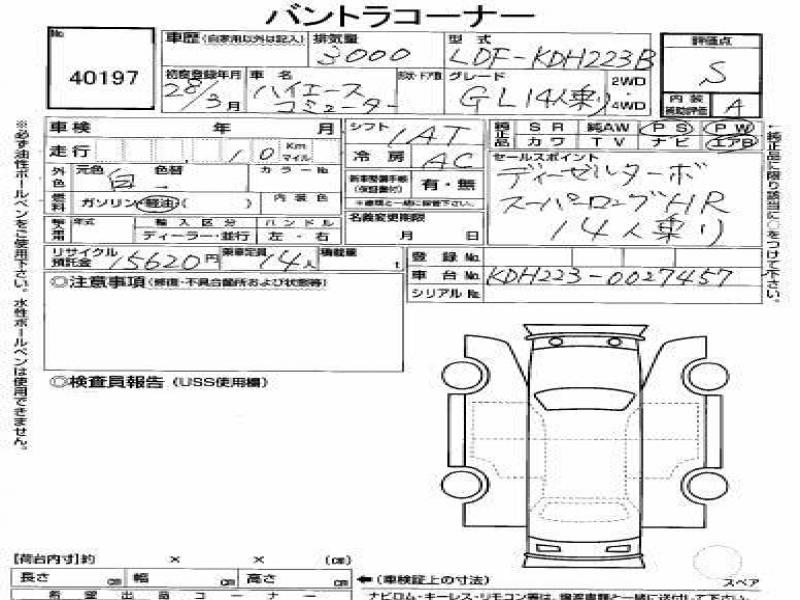 バントラコーナー
No. 40197
車歴 (自家用以外は記入)
排気量 3000
型式 LDF-KDH223B
評価点 S
初度登録年月 28/3月
車名 ハイエース コミューター
形状・ドア数
グレード GL 14人乗り
2WD
4WD
内装補助評価 A
車検 年 月
走行 10 Km マイル
シフト IAT
冷房 AC
純正品 SR 純AW PS PW
カワ TV ナビ エアB
外色 元色 白 色替 カラーNo.
内装色
燃料 ガソリン 軽油 ( )
新車整備手帳 (保証書付) 有・無
※書類と一緒に保管下さい。
セールスポイント
ディーゼルターボ
スーパーロングHR
14人乗り
輸入用 年式 輸入区分 ハンドル
ディーラー・並行 左・右
名義変更期限
月 日
リサイクル預託金 15620円
乗車定員 14人
積載量 t
登録No.
車台No. KDH223-0027457
シリアルNo.
◎注意事項 (修復・不具合箇所および状態等)
◎検査員報告 (USS使用欄)
※必ず油性ボールペンをご使用下さい。水性ボールペンは使用できません。
←純正品に限り該当に○をつけて下さい。
[荷台内寸]約 × × (cm)
長さ cm 幅 cm 高さ cm
←(車検証上の寸法)
スペア
希望出品コーナー
ナビロム・キーレス・リモコン等は、譲渡書類と一緒に送付して下さい。